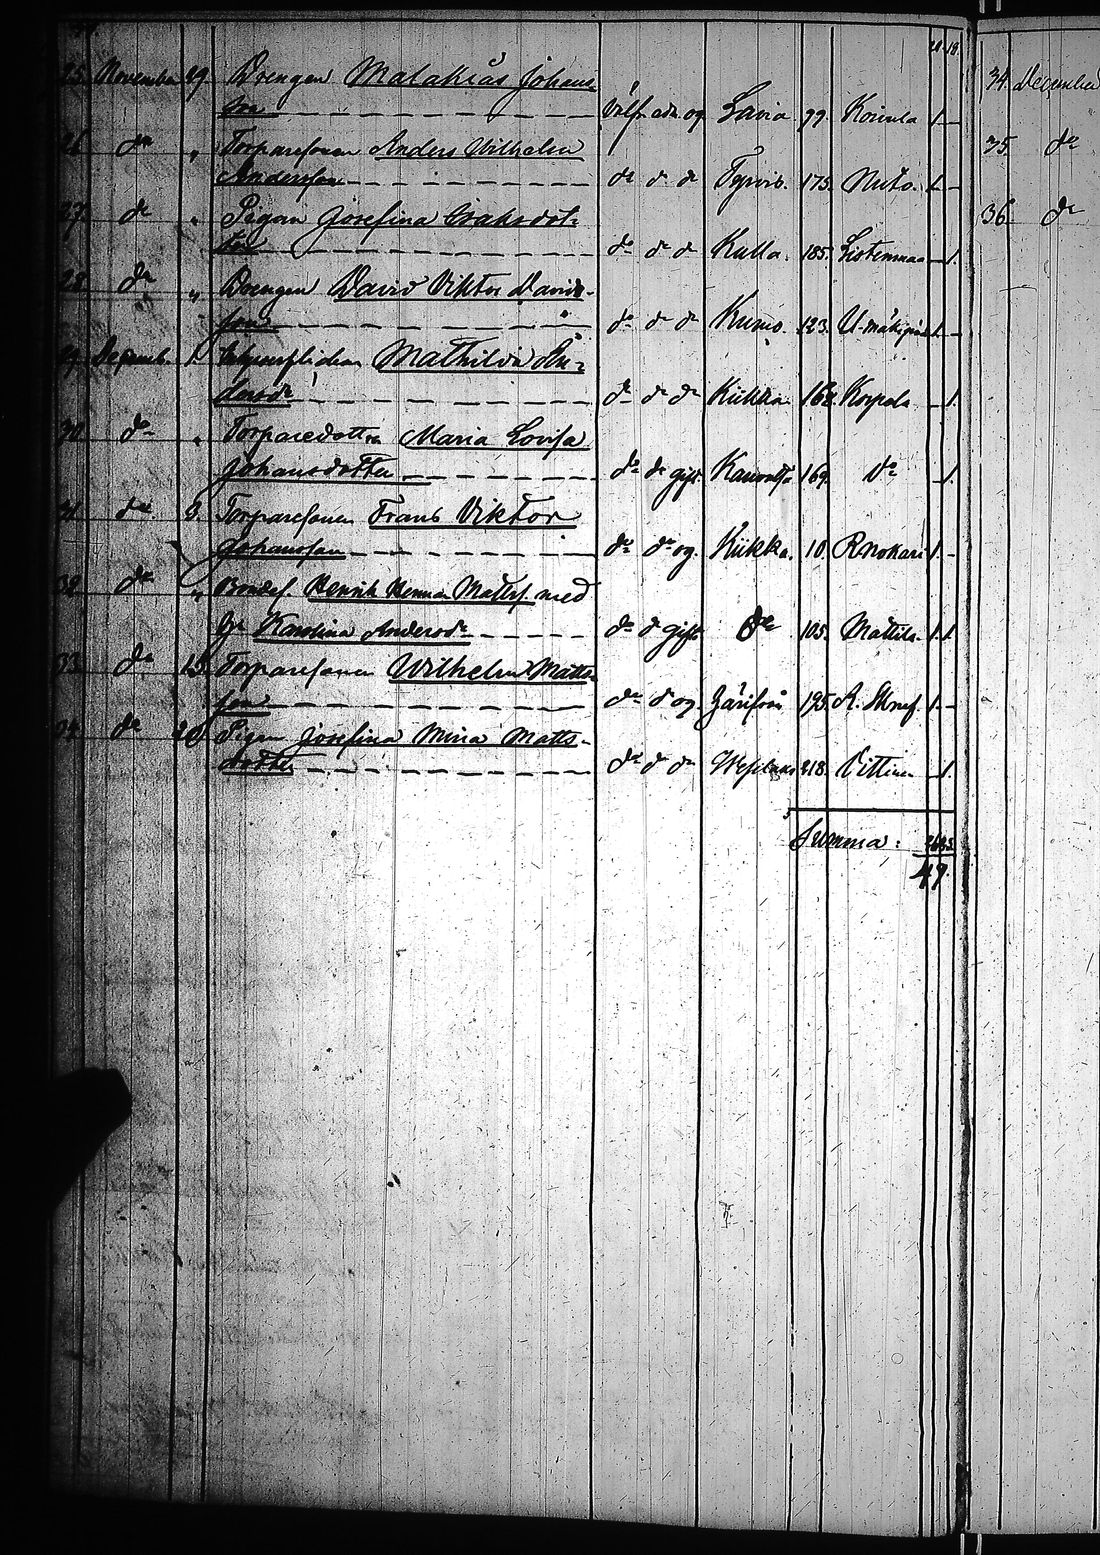 25. November 29. Drengen Malakias Johans-
son Välfr. adm. og. Lavia 99. Koivula 1 –
26 do " Torparesonen Anders Wilhelm
Andersson do do do Tyrvis. 175. Nuto. 1 –
27. do " Pigan Josefina Isaksdot-
ter do do do Kulla. 185. – 1.
28. do " Drengen David Viktor Davids-
son do do do Kumo. 123. 1 –
29. Decemb. 1. Mathilda An-
dersdr do do do Kiikka. 168. Korpela – 1.
30. do " Torparedottren Maria Lovisa
Johansdotter do do gift. 169. do – 1.
31. do 3. Torparesonen Frans Viktor
Johansson do do og. Kiikka. 10. 1 –
32. do " Bondes. Henrik Herman Mattss. med
h. Karolina Andersdr do do gift. do 105. Mattila. 1. 1.
33. do 15. Torparesonen Wilhelm Matts-
son do do og. 195. 1 –
34. do 20. Pigan Josefina Mina Matts-
dotter do do do 218. Vittinen – 1.
Summa:
49.
34. December
35. do
36. do